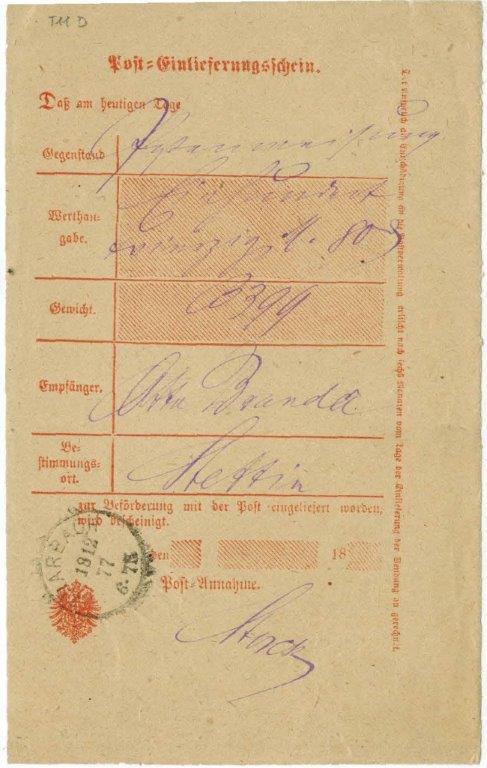 T11 D
Post-Einlieferungsschein.
Daß am heutigen Tage
Gegenstand
Werthan-
gabe.
Einhundert
zwanzig M. 80
Gewicht.
Empfänger.
Otto Branda
Be-
stimmungs-
ort.
Stettin
zur Beförderung mit der Post eingeliefert worden,
wird bescheinigt.
den 18
Post-Annahme.
ARBACH
1812
77
6-7N
Der Anspruch auf Entschädigung an die Postverwaltung erlischt nach sechs Monaten vom Tage der Einlieferung der Sendung an gerechnet.